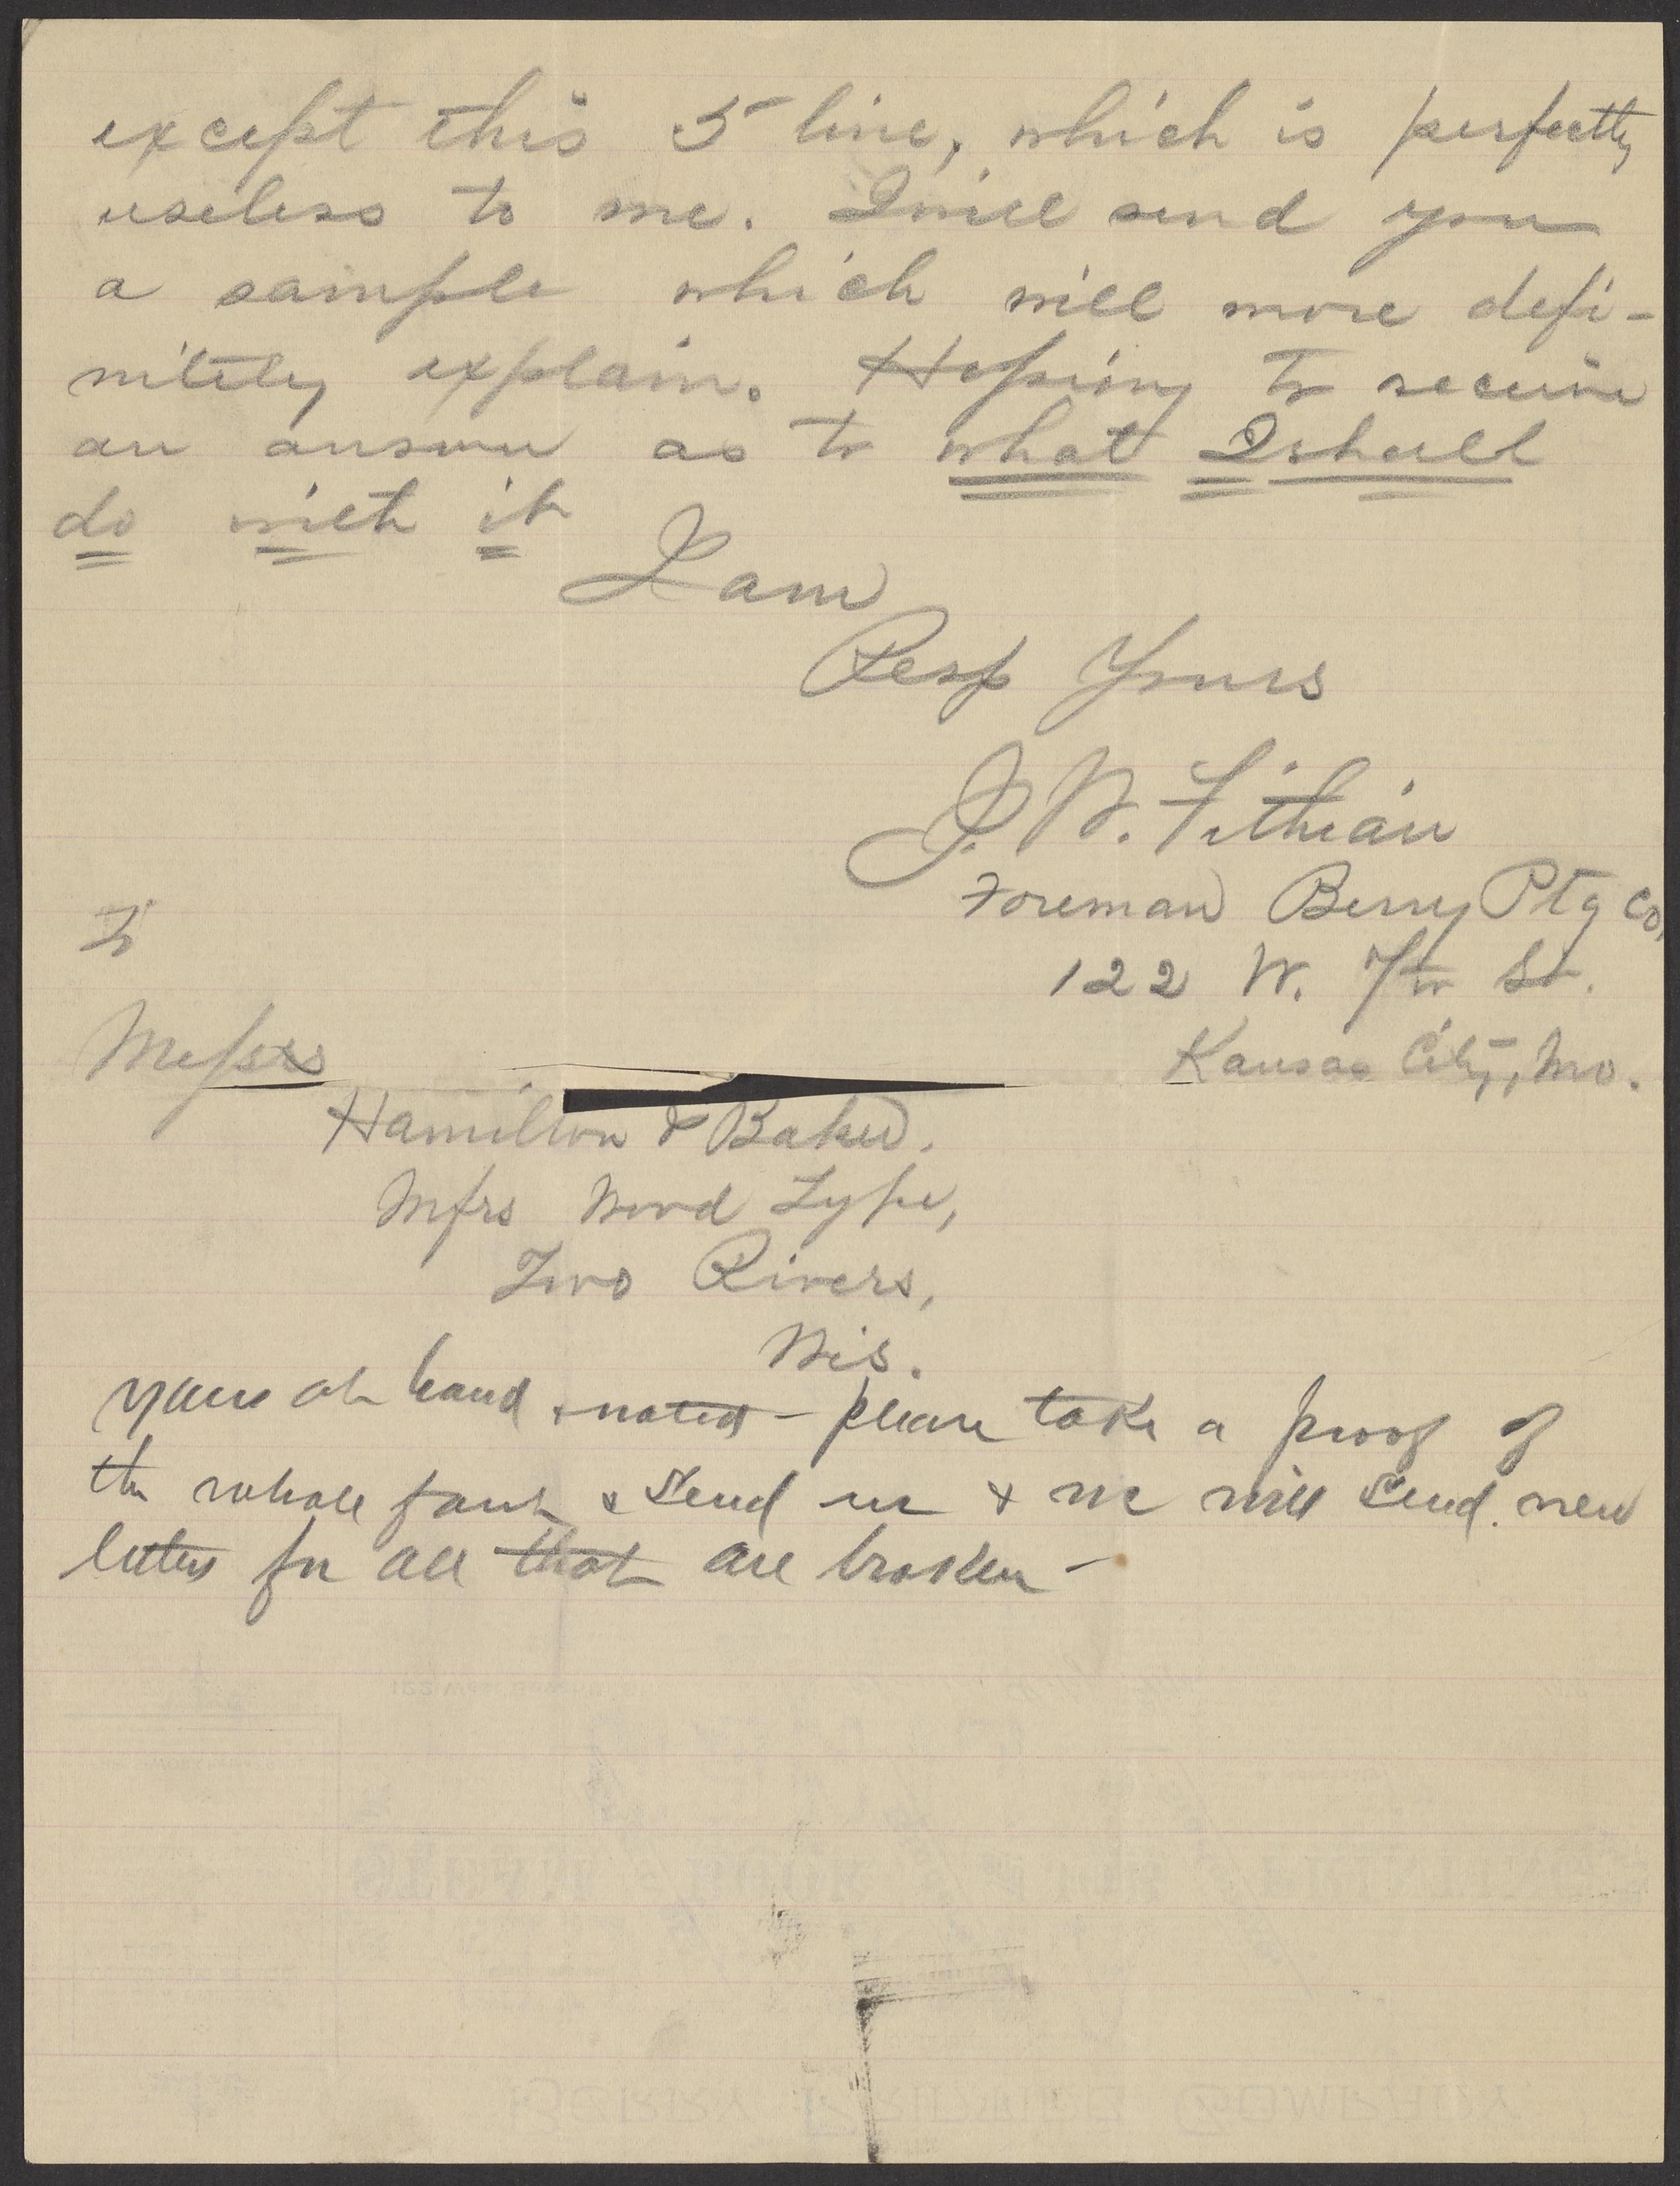 except this 5 line, which is perfectly
useless to me. I will send you
a sample which will more defi-
nitely explain. Hoping to receive
an answer as to what I shall
do with it
I am
Resp Yours
J. W. Fithian
Foreman Berry Ptg Co,
122 W. 7th St.
Kansas City, Mo.
To
Messrs
Hamilton & Baker.
Mfrs Wood Type,
Two Rivers,
Wis.
Yours at hand & noted - please take a proof of
the whole font & send us & we will send new
letters for all that are broken -
BERRY PRINTING COMPANY